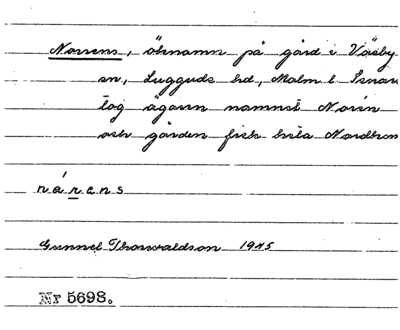 Norrens, öknamn på gård i Väsby
sn, Luggude hd, Malm. l. Senare
tog ägaren namnet Norén
och gården fick heta Nordkon
nárens
Gunnel Thorwaldson 1945
Nr 5698.